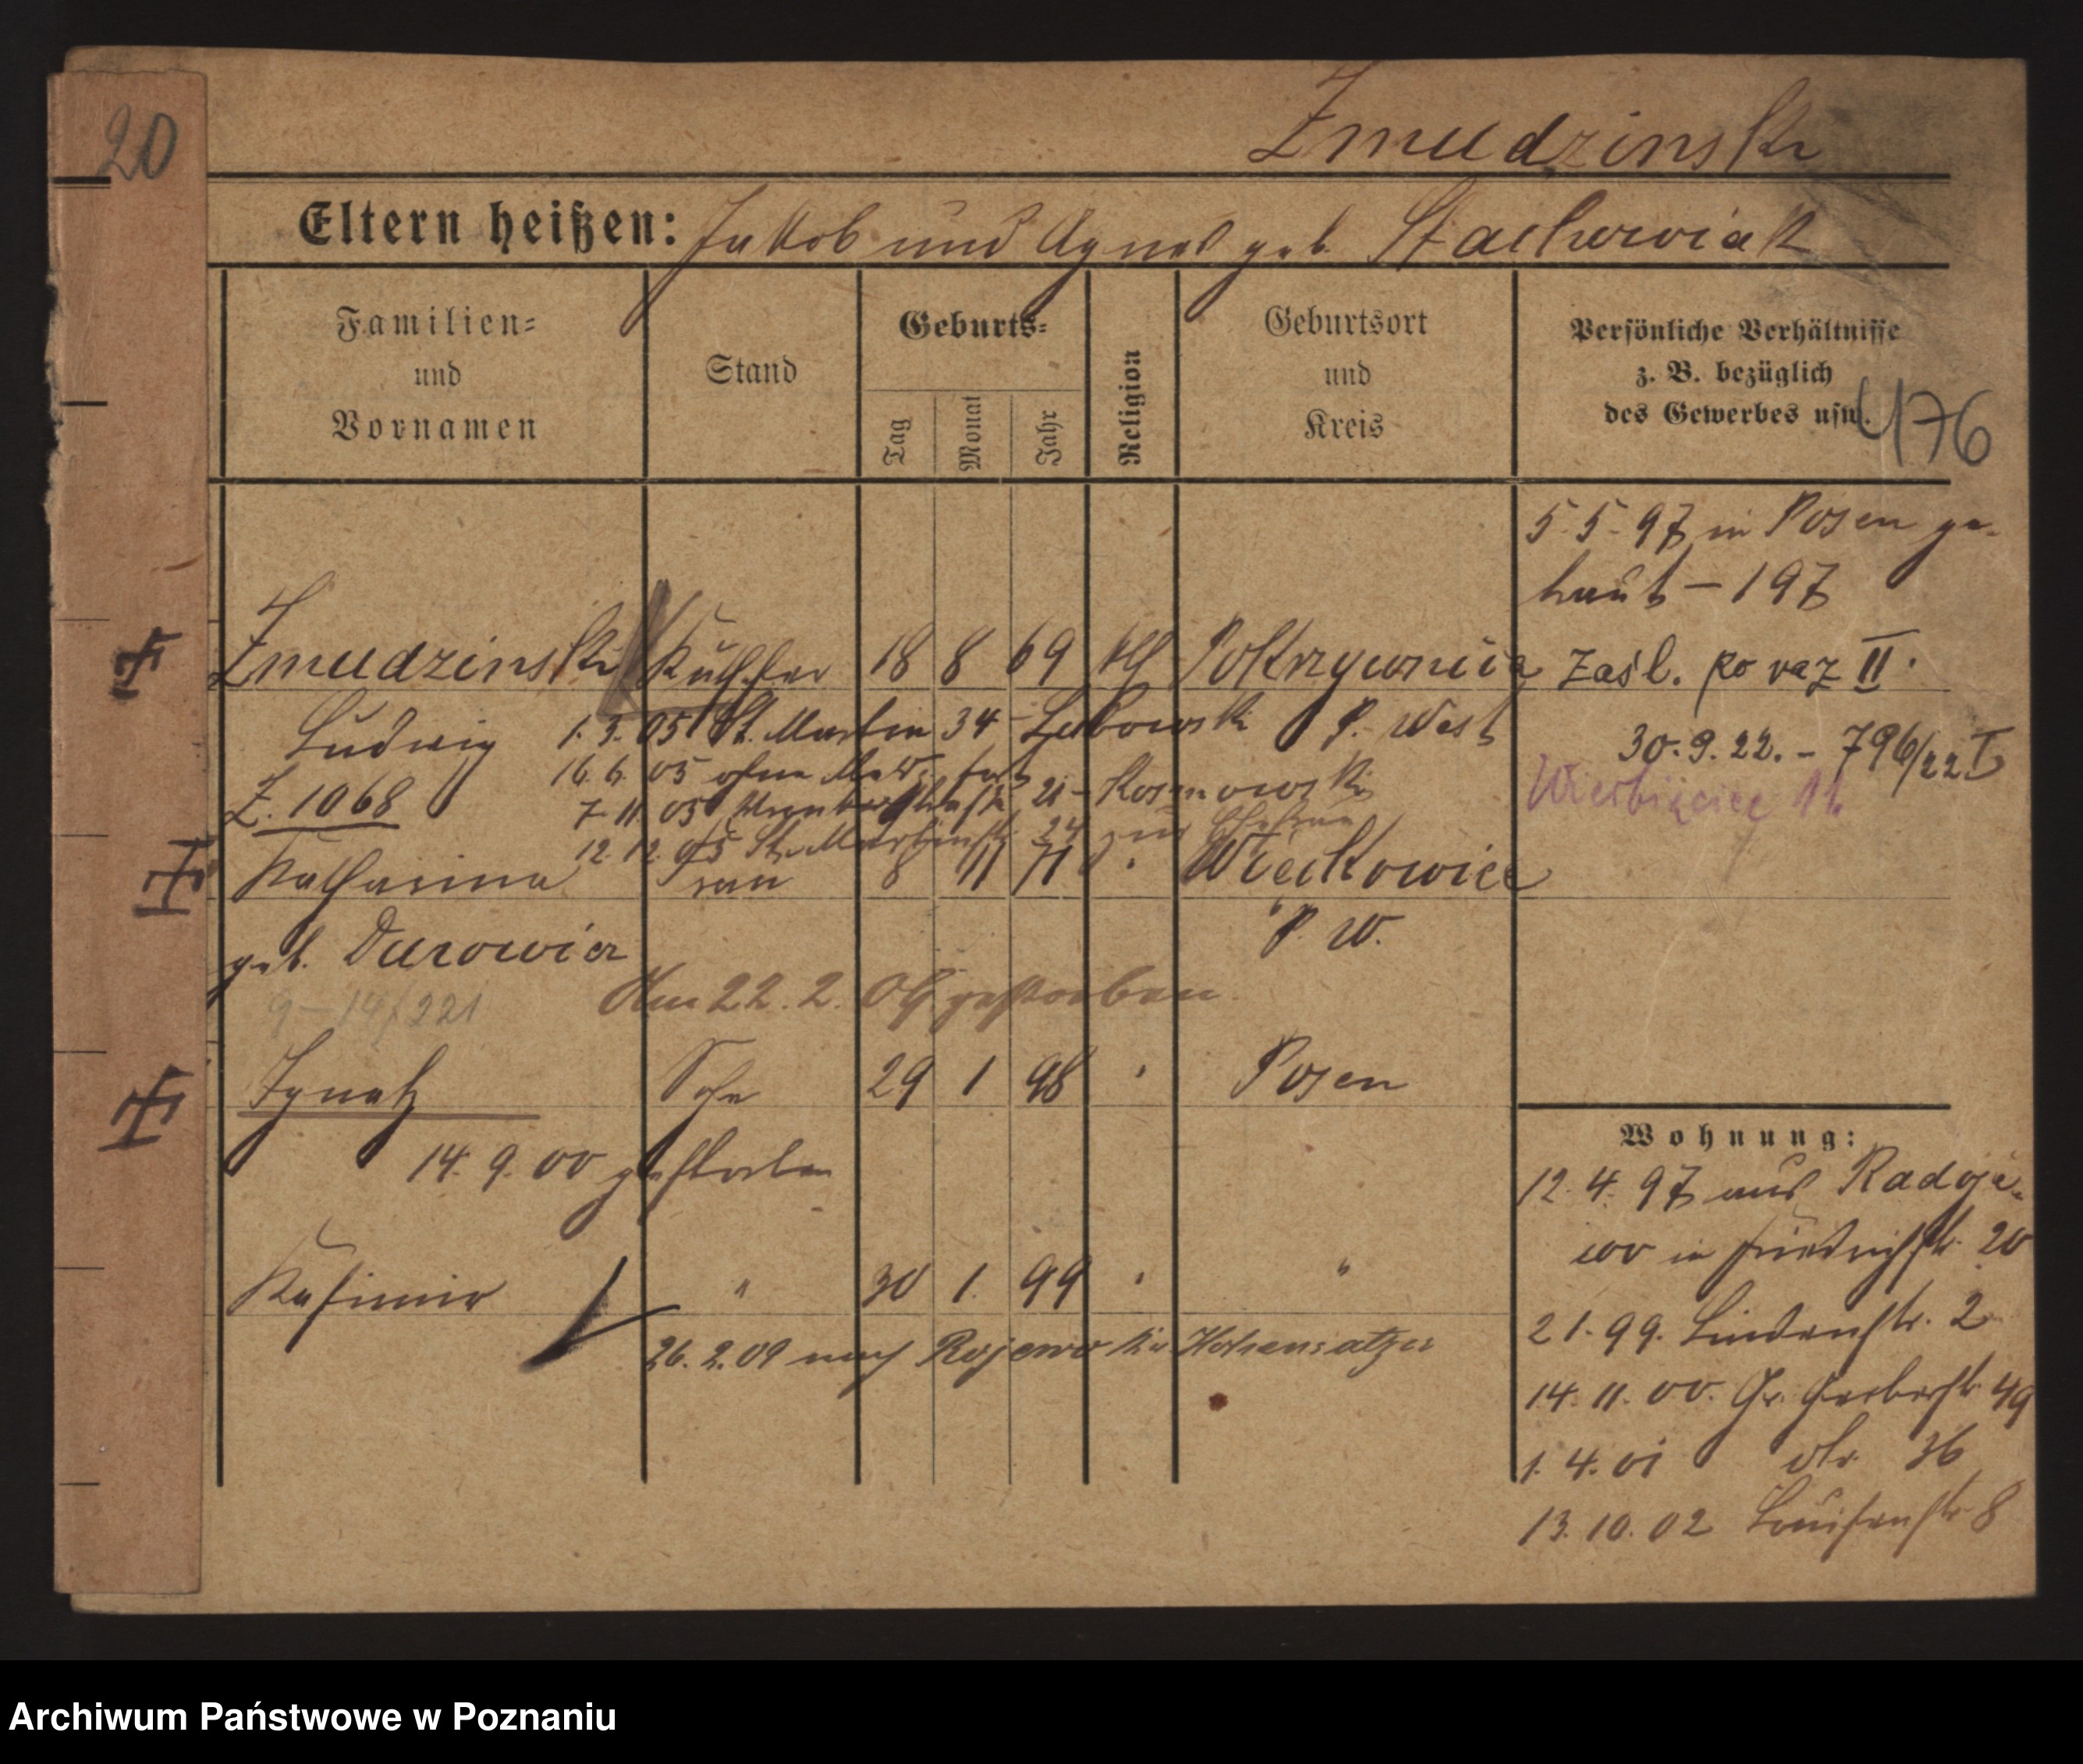 20
Zmudzinski
Eltern heißen: Jakob und Agnes geb. Stachowiak
Familien-
und
Vornamen
Stand
Geburts-
Tag
Monat
Jahr
Religion
Geburtsort
und
Kreis
Persönliche Verhältnisse
z. B. bezüglich
des Gewerbes usw.
476
5. 5. 97 in Posen ge-
traut – 197
Zmudzinski Kutscher 18 8 69 kth Pokrzywnica
Zaśl. po raz II.
Ludwig 1. 3. 05 St. Martin 34 – Lubowski P. West
30. 9. 22. – 796/22 I
16. 6. 05 ohne Meld. fort
Wierbięcice 11.
Z. 1068 7. 11. 05 21 – Kosmowski
12. 12. 05 St. Martinstr. 24 zur Ehefrau
Katharina Frau 8 11 71 " Wieckowice
geb. Durowicz P. W.
9–14/221 Am 22. 2. 04 gestorben
Ignatz Sohn 29 1 98 " Posen
14. 9. 00 gestorben
Kasimir " 30 1. 99 " "
26. 2. 09 nach Rojewo Kr. Hohensalza
Wohnung:
12. 4. 97 aus Radoje-
wo in Friedrichstr. 20
2 1. 99. Lindenstr. 2
14. 11. 00. Gr. Gerberstr. 49
1. 4. 01 dto. 36
13. 10. 02 Louisenstr. 8
Archiwum Państwowe w Poznaniu